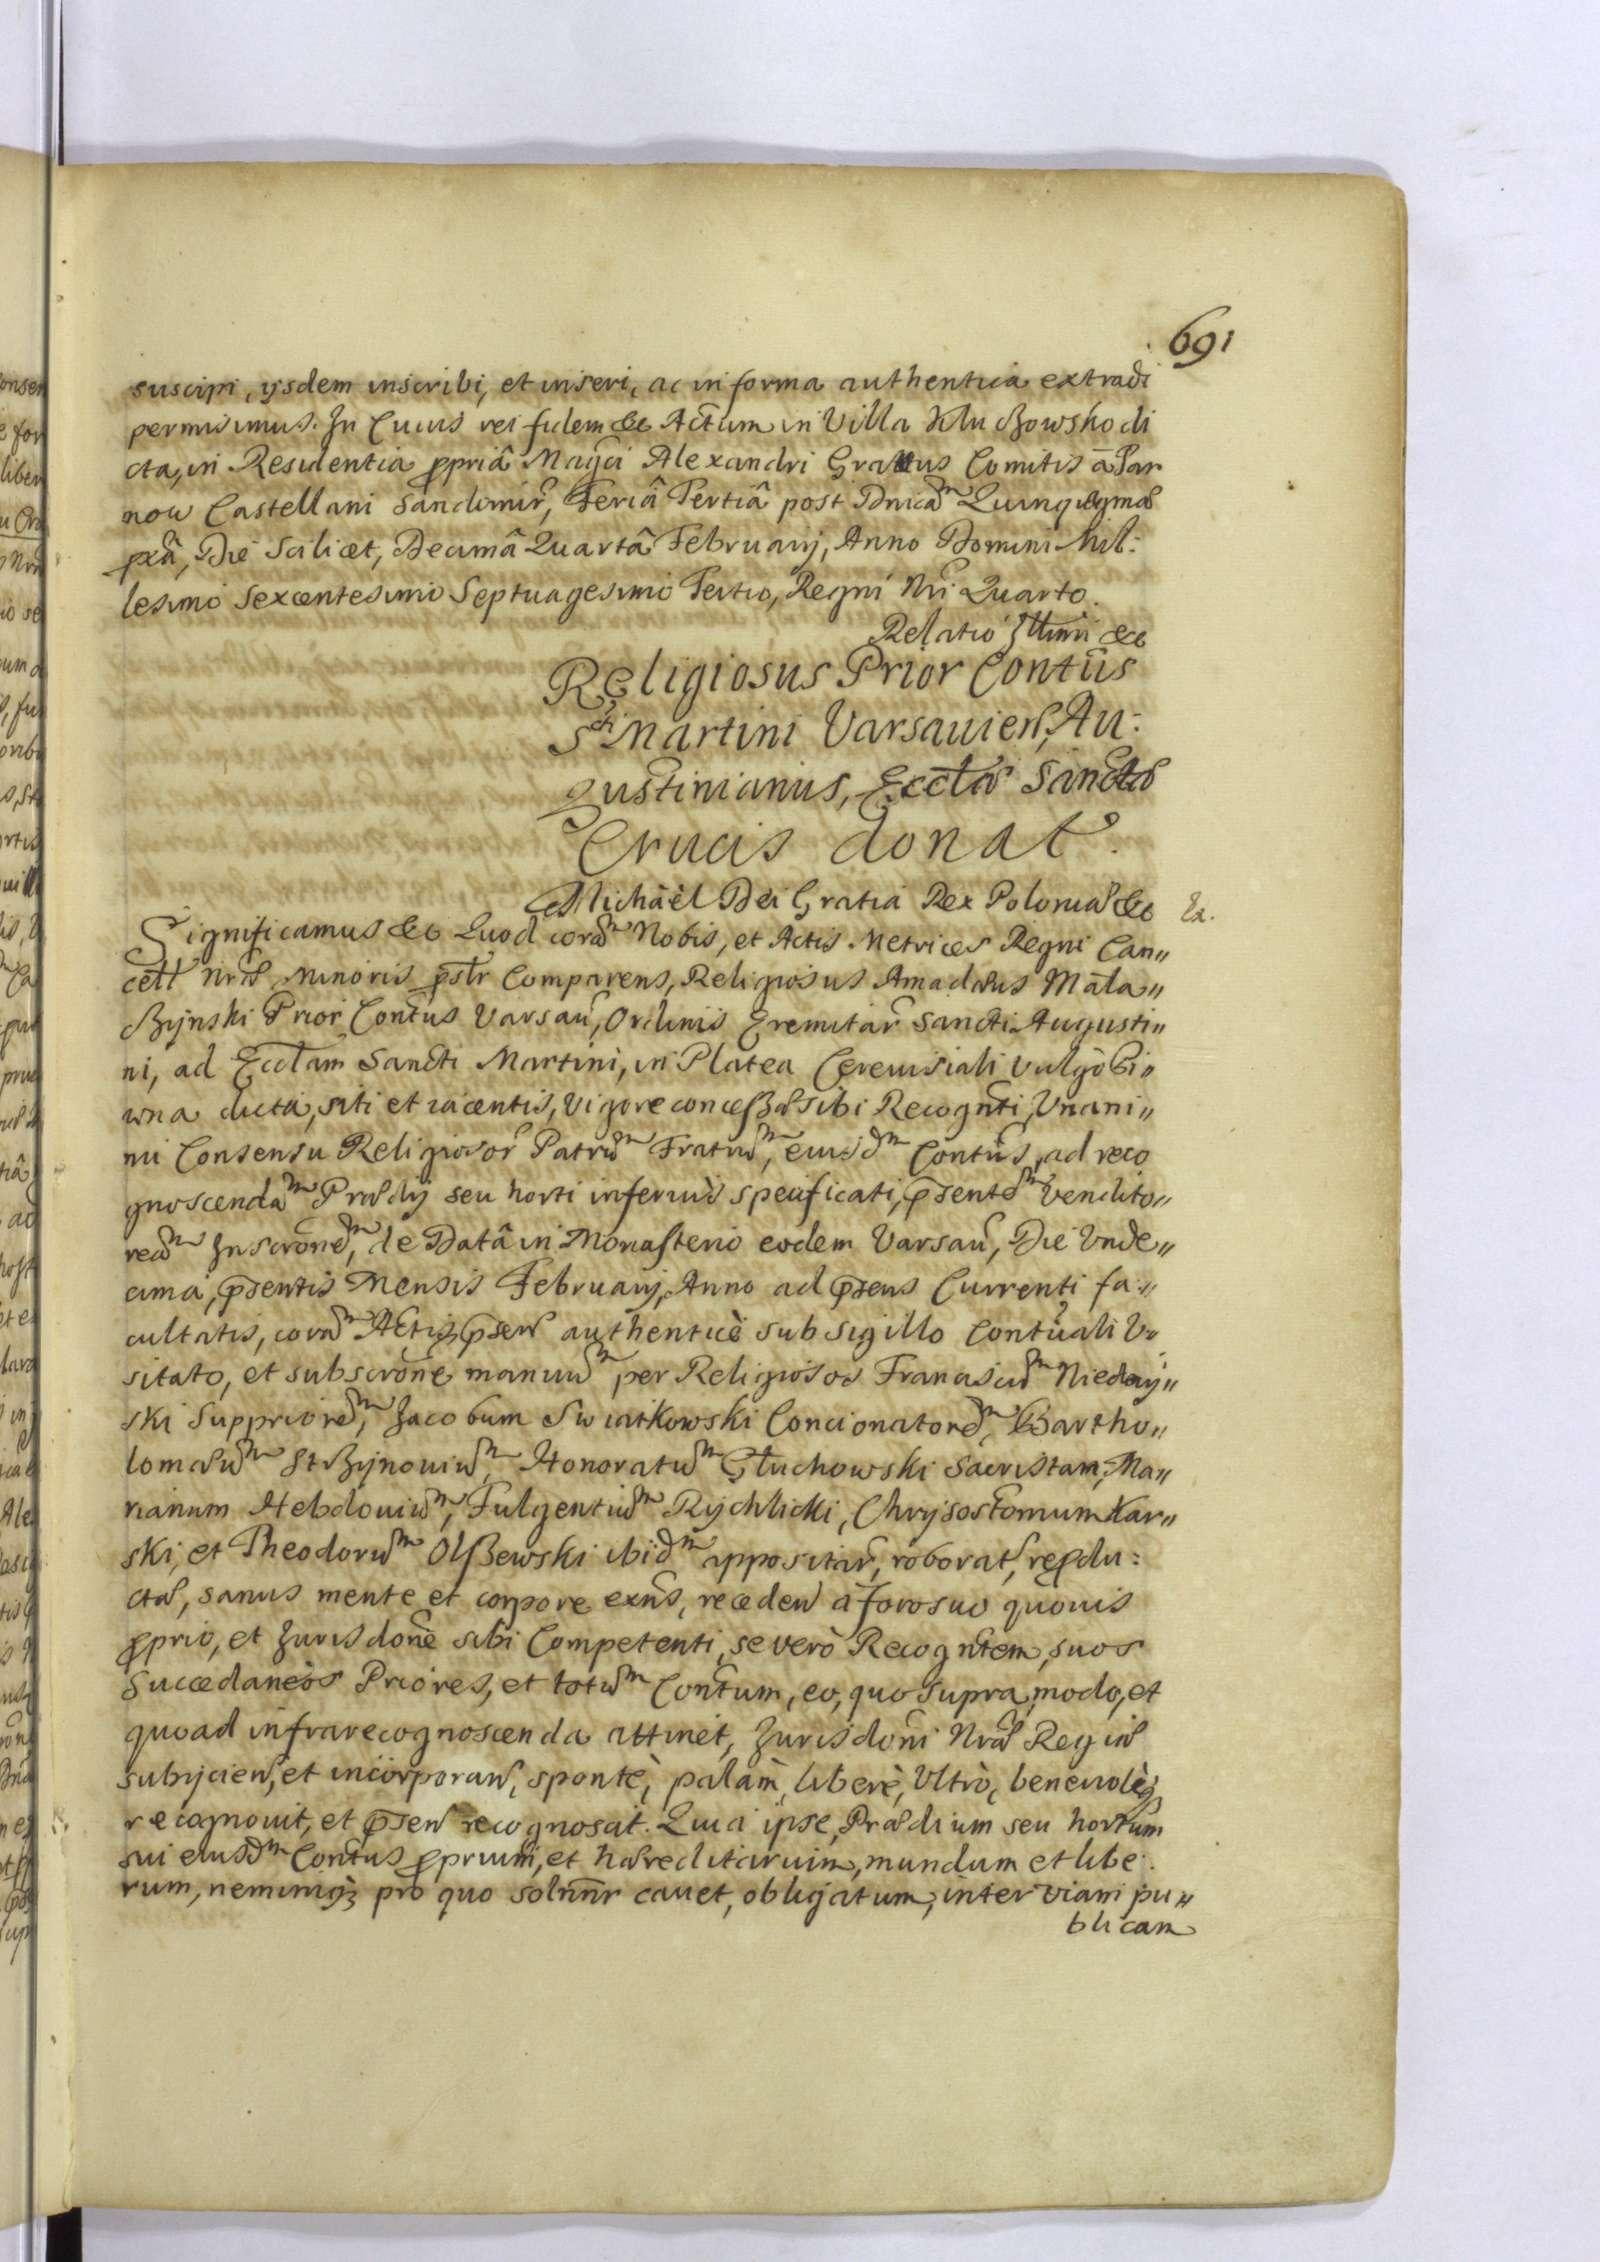 691
suscipi, ijsdem inscribi, et inseri, ac in forma authentica extradi
permisimus. In Cuius rei fidem &c Actum in Villa Klu
cta, in Residentia ppriâ Magci Alexandri Grattus Comitis à Tar
now Castellani Sandomir, Feriâ Tertiâ post Dnicam Quinquagmæ
pxâ, Die Scilicet, Decimâ Quartâ Februarij, Anno Domini Mil:
lesimo Sexcentesimo Septuagesimo Tertio, Regni Nri Quarto.
Relatio Illtmi &c
Religiosus Prior Contûs
Scti Martini Varsauien, Au:
gustinianus, Ecctæ Sanctæ
Crucis donat.
Michäèl Dei Gratia Rex Poloniæ &c
Ex.
Significamus &c Quod coram Nobis, et Actis Metrices Regni Can„
cell Nræ Minoris pstr Comparens, Religiosus Amadæus Mała„
szynski Prior Contus Varsau, Ordinis Eremitar Sancti Augusti„
ni, ad Ecctam Sancti Martini, in Platea Cereuisiali vulgò Pi„
wna dicta, siti et iacentis, vigore concessæ sibi Recognti, Vnani„
mi Consensu Religiosor Patrum Fratrum, eiusdm Contus, ad reco
gnoscendam Prædij seu horti inferius specificati, psentem Vendito„
ream Inscronem, de Datâ in Monasterio eodem Varsau, Die Vnde„
cima, psentis Mensis Februarij, Anno ad psens Currenti fa„
cultatis, coram Actis psen authenticè sub sigillo Contuali V„
sitato, et subscrone manuum per Religiosos Franciscum
ski Suppriorem, Jacobum Swiatkowski Concionatorem, Bartho„
lomæum Honoratum Głuchowski Sacristam, Ma„
rianum Hebdouium, Fulgentium Rychlicki, Chrysostomum Kar„
ski, et Theodorum Olszewski ibidm appositar, roborat, repdu:
ctæ, sanus mente et corpore exns, receden à foro suo quouis
pprio, et Jurisdone sibi Competenti, se verò Recogntem, suos
Succedaneos Priores, et totum Contum, eo, quo supra, modo, et
quoad infrarecognoscenda attinet, Jurisdoni Nræ Regiæ
subijcien, et incorporan, spontè, palàm, liberè, Vltrò, beneuolèq
recognouit, et psen recognoscit. Quia ipse, Prædium seu hortum
sui eiusdm Contus pprium, et hæreditarium, mundum et libe:
rum, neminiq pro quo solnnr cauet, obligatum, inter viam pu„
blicam